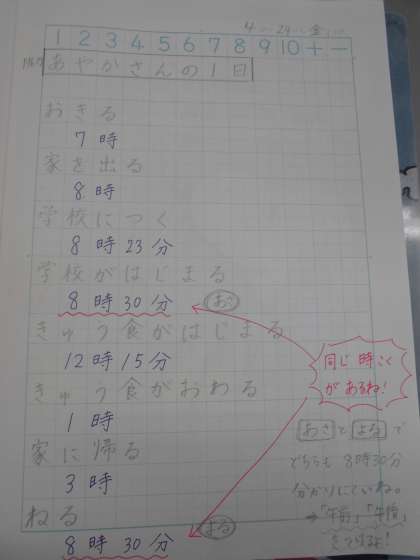 4 29 金
1 2 3 4 5 6 7 8 9 10 + −
あやかさんの1日
おきる
7時
家を出る
8時
学校につく
8時23分
学校がはじまる
8時30分 あさ
きゅう食がはじまる
12時15分
きゅう食がおわる
1時
家に帰る
3時
ねる
8時30分 よる
同じ時こく
があるね!
あさとよるで
どちらも8時30分
⇒「午前」「午後」